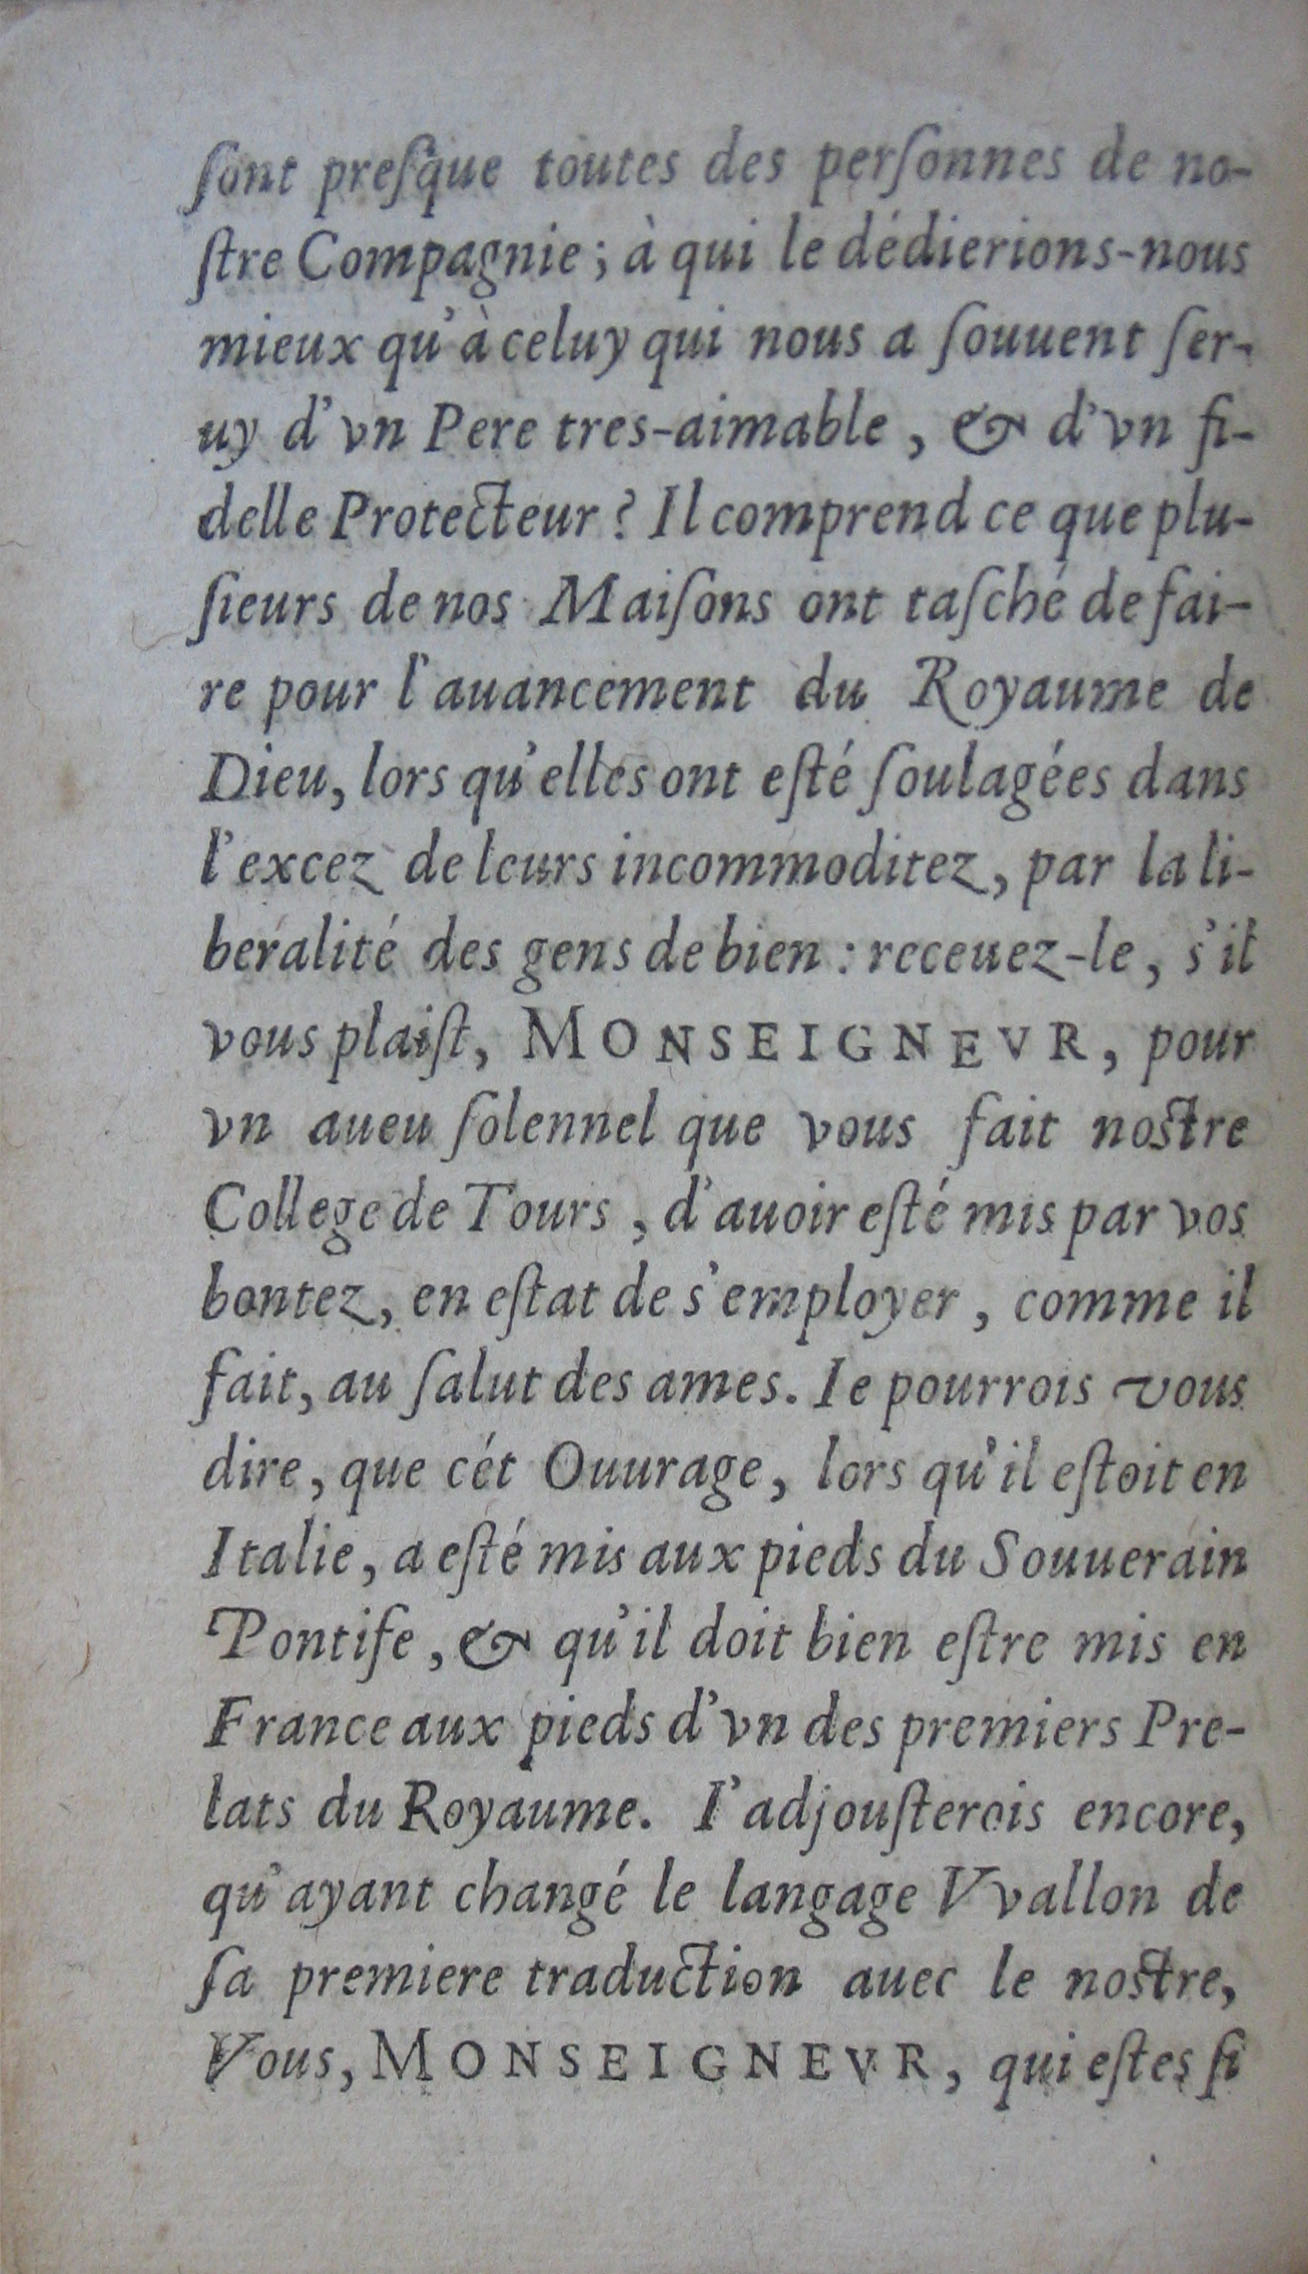 ſont preſque toutes des perſonnes de no-
ſtre Compagnie ; à qui le dédierions-nous
mieux qu'à celuy qui nous a ſouuent ſer-
uy d'vn Pere tres-aimable , & d'vn fi-
delle Protecteur ? Il comprend ce que plu-
ſieurs de nos Maiſons ont taſché de fai-
re pour l'auancement du Royaume de
Dieu, lors qu'elles ont eſté ſoulagées dans
l'excez de leurs incommoditez, par la li-
beralité des gens de bien : receuez-le , s'il
vous plaiſt, MONSEIGNEVR, pour
vn aueu ſolennel que vous fait nostre
College de Tours , d'auoir eſté mis par vos
bontez, en eſtat de s'employer , comme il
fait, au ſalut des ames. Ie pourrois vous
dire, que cét Ouurage, lors qu'il eſtoit en
Italie, a eſté mis aux pieds du Souuerain
Pontife , & qu'il doit bien eſtre mis en
France aux pieds d'vn des premiers Pre-
lats du Royaume. I'adjouſterois encore,
qu'ayant changé le langage Vvallon de
ſa premiere traduction auec le nostre,
Vous, MONSEIGNEVR, qui eſtes ſi